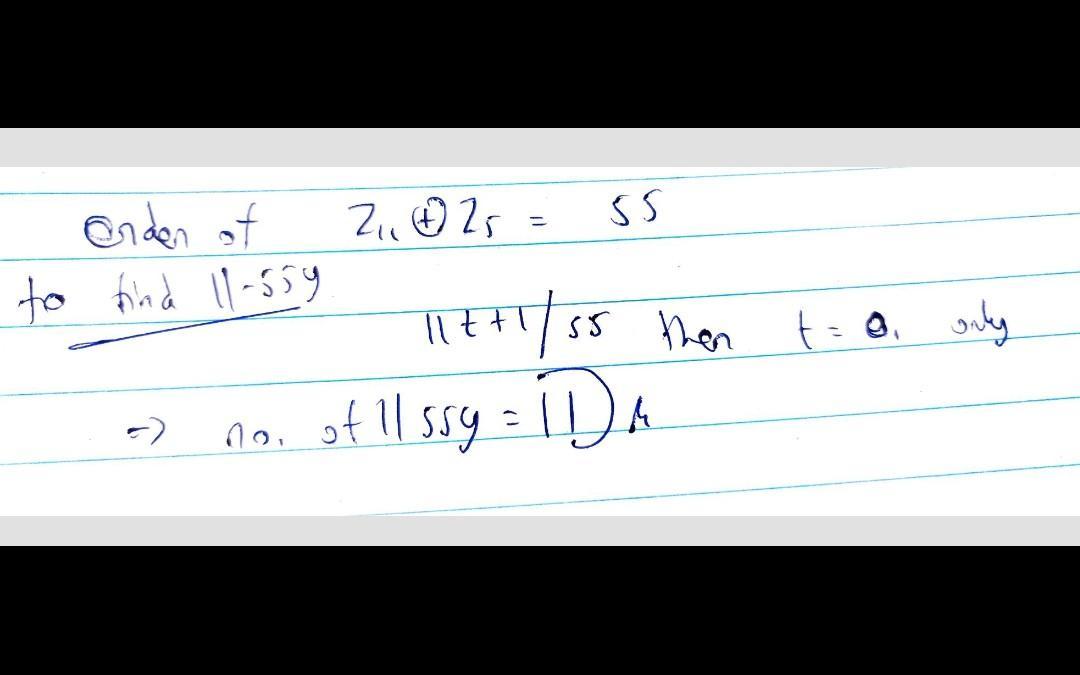 Order of Z₁₁ ⊕ Z₅ = 55
to find 11-SSy
11t+1/55 then t = 0. only
=> no. of 11 SSy = 1